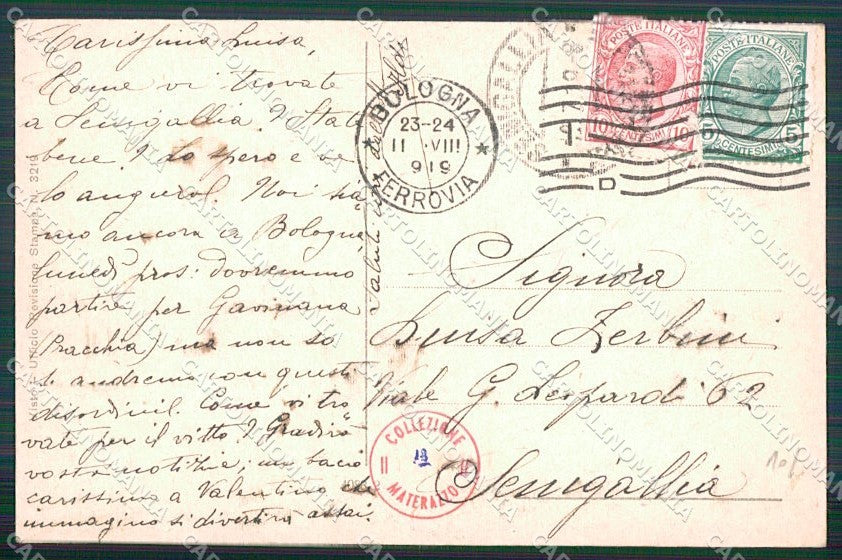 Carissima Luisa,
Come vi trovate
a Senigallia? State
bene? Lo spero e ve
lo auguro. Noi sia
mo ancora a Bologna
lunedì pros: dovremmo
partire per Gavinana
(Pracchia) ma non so
se andremo con questi
disordini. Come vi tro
vate per il vitto? Gradirò
vostre notizie; un bacio
carissimo a Valentino che
immagino si divertirà assai.
Saluti
Visto Ufficio Revisione Stampa N. 3219
BOLOGNA
23-24
11 VIII
919
FERROVIA
POSTE ITALIANE
10 CENTESIMI 10
POSTE ITALIANE
5 CENTESIMI 5
D
Signora
Luisa Zerbini
Viale G. Leopardi 62
Senigallia
COLLEZIONE
MATERAZZO
CARTOLINOMANIA